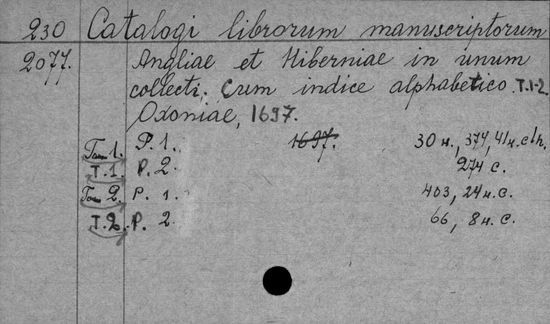 230 Catalogi librorum manuscriptorum
2077. Angliae et Hiberniae in unum
collecti. Cum indice alphabetico. T.1-2.
Oxoniae, 1697.
Том 1. P. 1. 1697. 30 н., 374, 41 н. с.
T. 1. P. 2. 274 c.
Том 2. P. 1. 403, 24 н. c.
T. 2. P. 2. 66, 8 н. c.